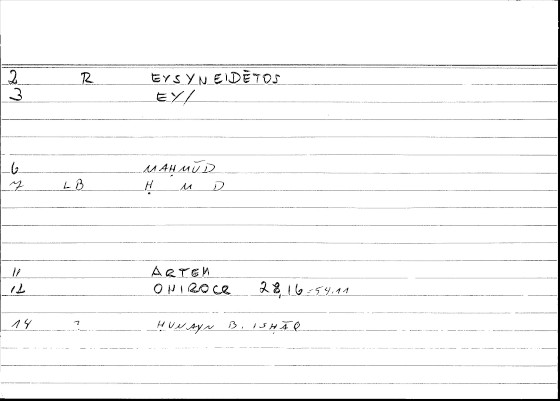 2 R EYSYNEIDĒTOS
3 EY/
6 MAḤMŪD
7 LB Ḥ M D
11 ARTEM
12 ONIROCR 28,16 = 54.11
14 ? ḤUNAYN B. ISḤĀQ